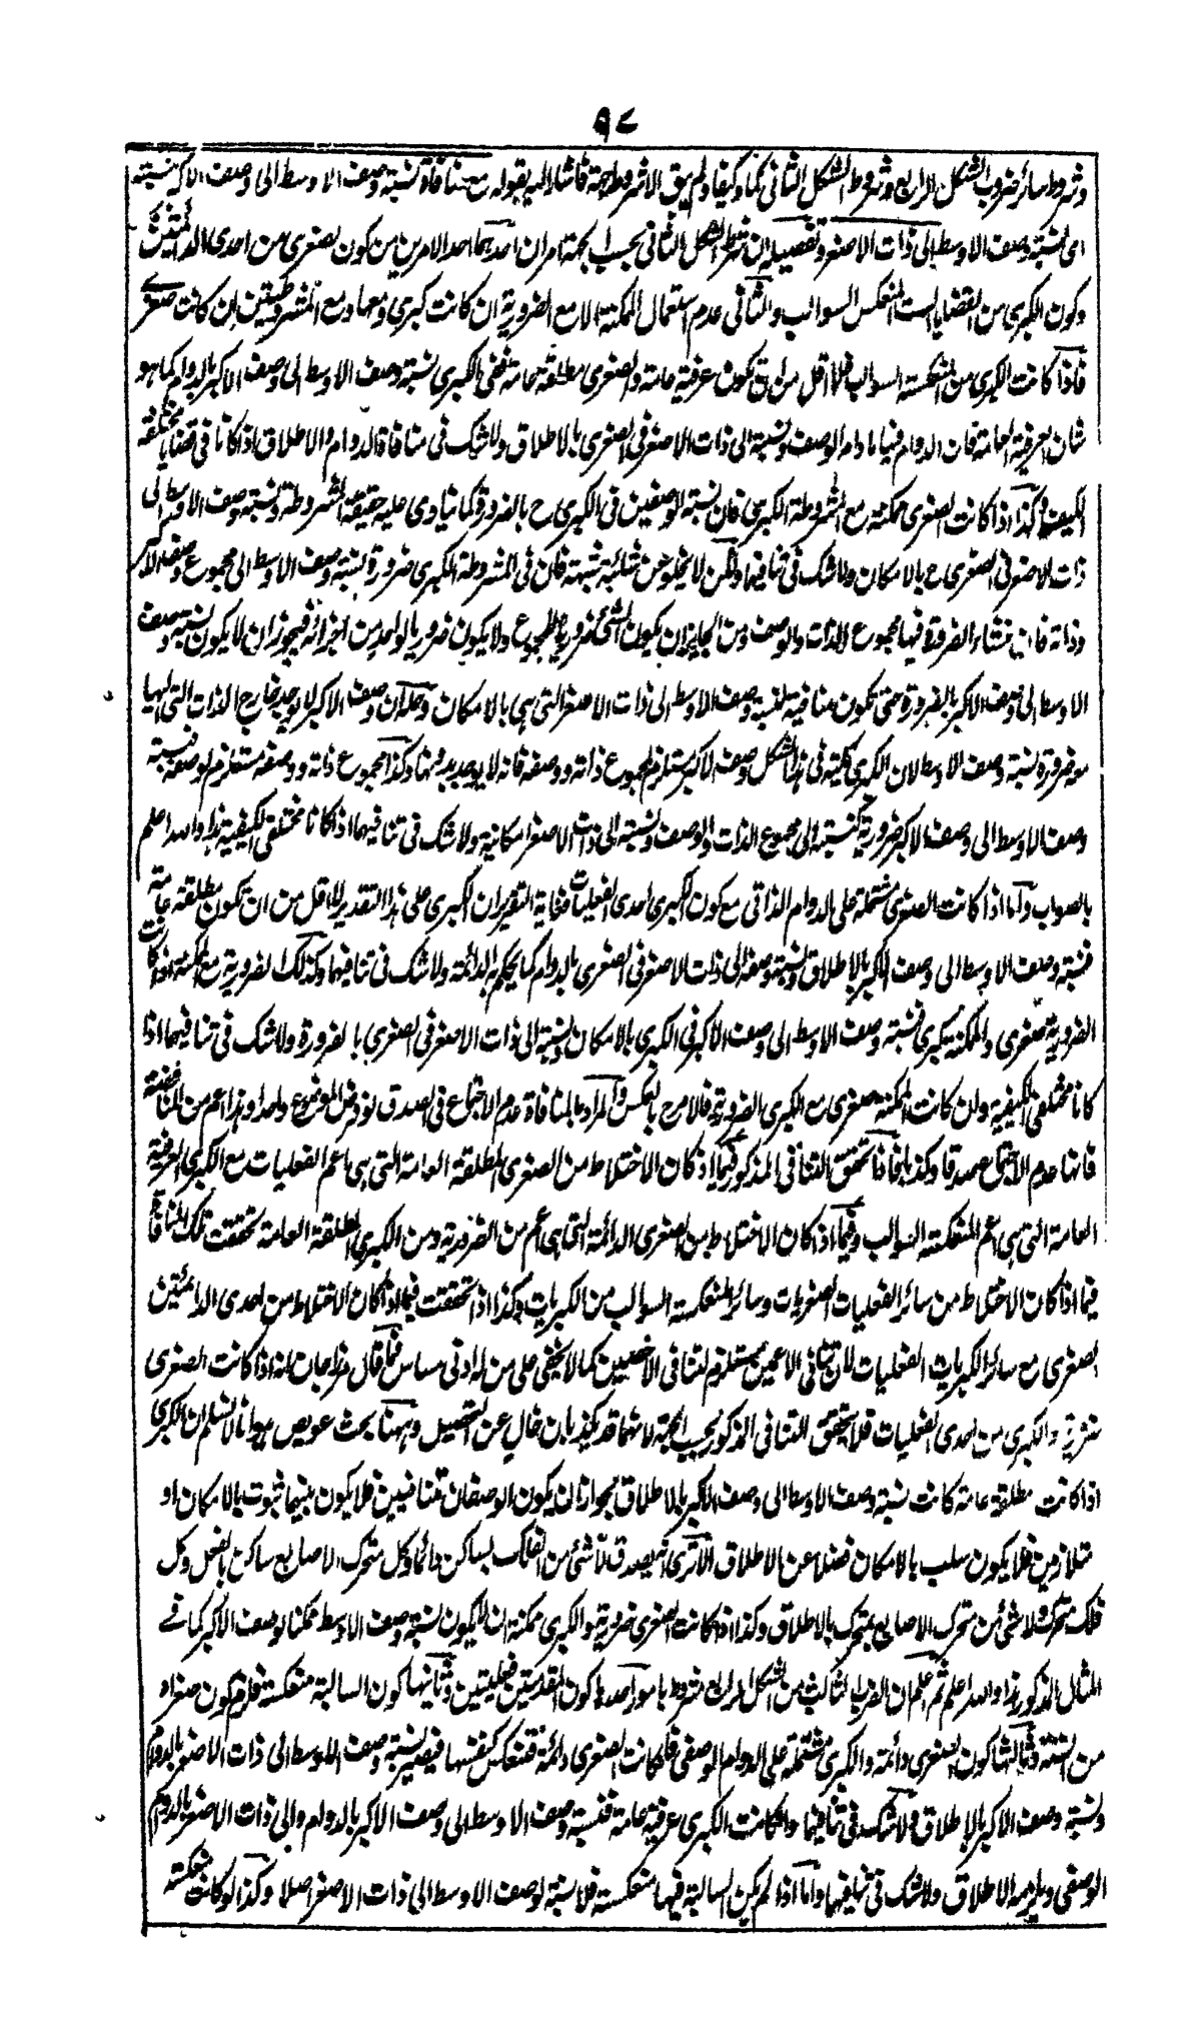 ٩٧
وشروط سائر ضروب الشكل الرابع وشروط الشكل الثانى كما وكيفا ولم يبق الا شروط الجهة فاشار اليه بقوله مع منافاة نسبة وصف الاوسط الى وصف الاكبر لنسبته
اى لنسبة وصف الاوسط الى ذات الاصغر وتفصيله ان شرط الشكل الثانى بحسب الجهة امران احدهما احد الامرين من كون الصغرى من احدى الدائمتين
وكون الكبرى من القضايا الست المنعكسة السوالب والثانى عدم استعمال الممكنة الا مع الضرورية ان كانت كبرى ومعها ومع المشروطتين ان كانت صغرى
فاذا كانت الكبرى من المنعكسة السوالب فلا اقل من ان تكون عرفية عامة والصغرى مطلقة عامة ففى الكبرى نسبة وصف الاوسط الى وصف الاكبر بالدوام كما هو
شان العرفية العامة فان الدوام فيها ما دام الوصف ونسبة الى ذات الاصغر فى الصغرى بالاطلاق ولا شك فى منافاة الدوام والاطلاق اذا كانا فى قضايا مختلفة
الكيف وكذا اذا كانت الصغرى ممكنة مع المشروطة الكبرى فان نسبة الوصفين فى الكبرى ح بالضرورة كما ينادى عليه حقيقة المشروطة ونسبة وصف الاوسط الى
ذات الاصغر فى الصغرى ح بالامكان ولا شك فى تنافيهما ولكن لا يخلو عن شائبة شبهة فان فى المشروطة الكبرى ضرورة نسبة وصف الاوسط الى مجموع وصف الاكبر
وذاته فان منشاء الضرورة فيها مجموع الذات والوصف ومن الجايز ان يكون الشئ ضروريا للمجموع ولا يكون ضروريا لواحد من اجزائه فيجوز ان لا يكون نسبة وصف
الاوسط الى وصف الاكبر بالضرورة حتى تكون منافية لنسبة وصف الاوسط الى ذات الاصغر التى هى بالامكان وحله ان وصف الاكبر لا يوجد خارج الذات التى لها
ضرورة نسبة وصف الاوسط لان الكبرى كلية فى هذا الشكل وصف الاكبر مستلزم لمجموع ذاته ووصفه فانه لا يوجد بدونها وكذا مجموع ذاته ووصفه مستلزم لوصفه فنسبة
وصف الاوسط الى وصف الاكبر ضرورية كنسبته الى مجموع الذات والوصف ونسبة الى ذات الاصغر امكانية ولا شك فى تنافيهما اذا كانا مختلفى الكيفية هذا والله اعلم
بالصواب واما اذا كانت الصغرى مشتملة على الدوام الذاتى مع كون الكبرى احدى الفعليات فغاية التقرير ان الكبرى على هذا التقدير لا اقل من ان تكون مطلقة عامة
فنسبة وصف الاوسط الى وصف الاكبر بالاطلاق ونسبة وصفه الى ذات الاصغر فى الصغرى بالدوام كما يحكم به الدائمة ولا شك فى تنافيهما وكذلك الضرورية مع الممكنة اذا كانت
الضرورية صغرى والممكنة كبرى فنسبة وصف الاوسط الى وصف الاكبر فى الكبرى بالامكان ونسبة الى ذات الاصغر فى الصغرى بالضرورة ولا شك فى تنافيهما اذا
كانا مختلفى الكيفية وان كانت الممكنة صغرى مع الكبرى الضرورية فالامر ح بالعكس والمراد بالمنافاة عدم الاجتماع فى الصدق لو فرض الموضوع واحدا وهذا اعم من المناقضة
فانها عدم الاجتماع صدقا وكذبا فاذا تحقق التنافى المذكور فيما اذا كان الاختلاط من الصغرى المطلقة العامة التى هى اعم الفعليات مع الكبرى العرفية
العامة التى هى اعم المنعكسة السوالب وفيما اذا كان الاختلاط من الصغرى الدائمة التى هى اعم من الضرورية ومن الكبرى المطلقة العامة تحققت تلك المنافاة
فيما اذا كان الاختلاط من سائر الفعليات الصغريات وسائر المنعكسة السوالب من الكبريات وكذا اذا تحققت فيما اذا كان الاختلاط من احدى الدائمتين
الصغرى مع سائر الكبريات الفعليات لان تنافى الاعمين مستلزم لتنافى الاخصين كما لا يخفى على من له ادنى مساس فما قال مرزا جان انه اذا كانت الصغرى
ضرورية والكبرى من احدى الفعليات فلا يتحقق التنافى المذكور بحسب الجهة لا مما قد يكذبان خال عن التحصيل وههنا بحث عويص هو انا لا نسلم ان الكبرى
اذا كانت مطلقة عامة كانت نسبة وصف الاوسط الى وصف الاكبر بالاطلاق لجواز ان يكون الوصفان متنافيين فلا يكون بينهما ثبوت بالامكان او
متلازمين فلا يكون سلب بالامكان فضلا عن الاطلاق الا ترى انه يصدق لا شئ من الفلك بساكن دائما وكل متحرك الاصابع ساكن بالفعل وكل
فلك متحرك ولا شئ من متحرك الاصابع بمتحرك بالاطلاق وكذا اذا كانت الصغرى ضرورية والكبرى ممكنة ان لا يكون نسبة وصف الاوسط ممكنا لوصف الاكبر كما فى
المثال المذكور هذا والله اعلم ثم اعلم ان الضرب الثالث من الشكل الرابع مشروط بامور احدها كون المقدمتين فعليتين وثانيها كون السالبة منعكسة فلزم كون صغراه
من الستة وثالثها كون الصغرى دائمة والكبرى مشتملة على الدوام الوصفى فلو كانت الصغرى دائمة فتنعكس كنفسها فيصير نسبة وصف الاوسط الى ذات الاصغر بالدوام
ونسبة وصف الاكبر بالاطلاق ولا شك فى تنافيهما ولو كانت الكبرى عرفية عامة فنسبة وصف الاوسط الى وصف الاكبر بالدوام والى ذات الاصغر بالدوام
الوصفى ويلزمه الاطلاق ولا شك فى تنافيهما واما اذا لم يكن السالبة فيها منعكسة فلا نسبة لوصف الاوسط الى ذات الاصغر اصلا وكذا لو كانت منعكسة